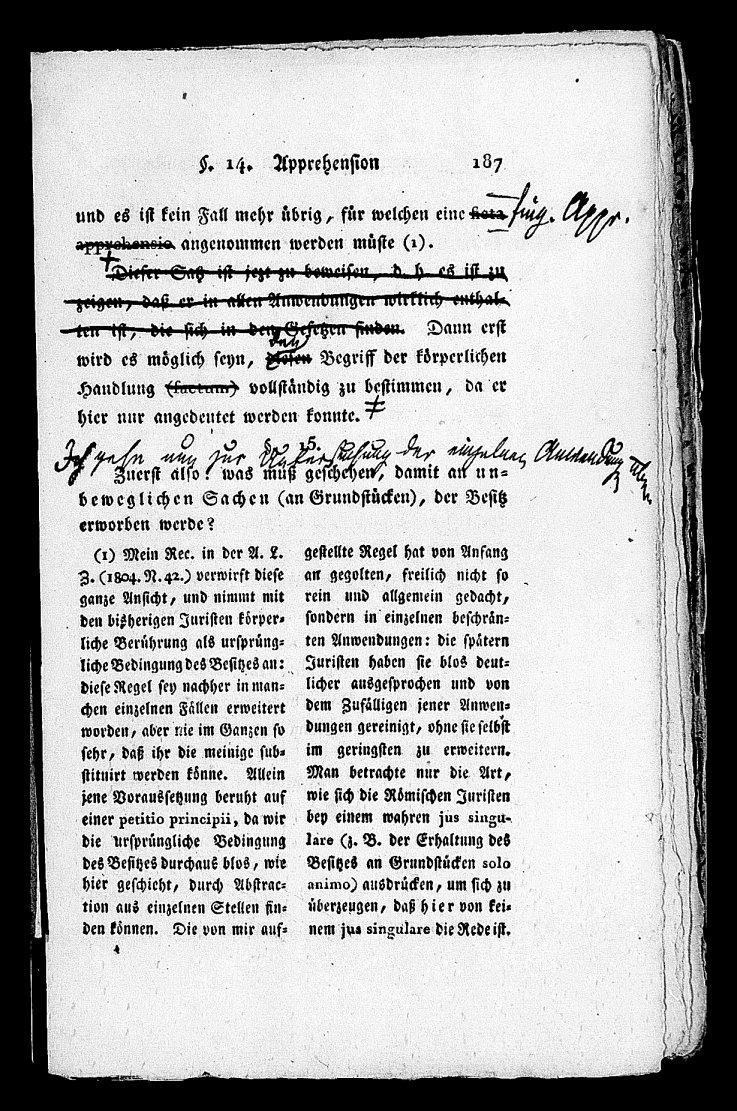 §. 14. Apprehension 187
und es ist kein Fall mehr übrig, für welchen eine ficta fing. Appr.
apprehensio angenommen werden müßte (1).
Dieser Satz ist jezt zu beweisen, d. h. es ist zu
zeigen, daß er in allen Anwendungen wirklich enthal-
ten ist, die sich in den Gesetzen finden. Dann erst
den
wird es möglich seyn, diesen Begriff der körperlichen
Handlung (factum) vollständig zu bestimmen, da er
hier nur angedeutet werden konnte.
§. 15.
Ich gehe nun zur Untersuchung der einzelnen Anwendung
Zuerst also: was muß geschehen, damit an un-
beweglichen Sachen (an Grundstücken), der Besitz
erworben werde?
(1) Mein Rec. in der A. L.
Z. (1804. N. 42.) verwirft diese
ganze Ansicht, und nimmt mit
den bisherigen Juristen körper-
liche Berührung als ursprüng-
liche Bedingung des Besitzes an:
diese Regel sey nachher in man-
chen einzelnen Fällen erweitert
worden, aber nie im Ganzen so
sehr, daß ihr die meinige sub-
stituirt werden könne. Allein
jene Voraussetzung beruht auf
einer petitio principii, da wir
die ursprüngliche Bedingung
des Besitzes durchaus blos, wie
hier geschieht, durch Abstrac-
tion aus einzelnen Stellen fin-
den können. Die von mir auf-
gestellte Regel hat von Anfang
an gegolten, freilich nicht so
rein und allgemein gedacht,
sondern in einzelnen beschrän-
ten Anwendungen: die spätern
Juristen haben sie blos deut-
licher ausgesprochen und von
dem Zufälligen jener Anwen-
dungen gereinigt, ohne sie selbst
im geringsten zu erweitern.
Man betrachte nur die Art,
wie sich die Römischen Juristen
bey einem wahren jus singu-
lare (z. B. der Erhaltung des
Besitzes an Grundstücken solo
animo) ausdrücken, um sich zu
überzeugen, daß hier von kei-
nem jus singulare die Rede ist.